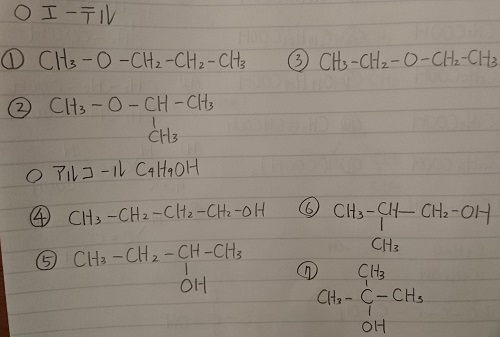 ○ エーテル
① CH3-O-CH2-CH2-CH3
③ CH3-CH2-O-CH2-CH3
② CH3-O-CH-CH3
CH3
○ アルコール C4H9OH
④ CH3-CH2-CH2-CH2-OH
⑥ CH3-CH-CH2-OH
CH3
⑤ CH3-CH2-CH-CH3
OH
⑦ CH3
CH3-C-CH3
OH